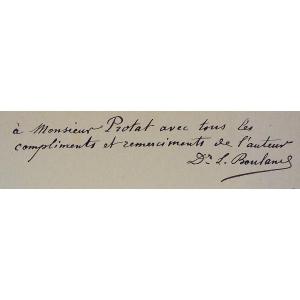 à Monsieur Protat avec tous les
compliments et remerciments de l'auteur
Dr L. Boulanel